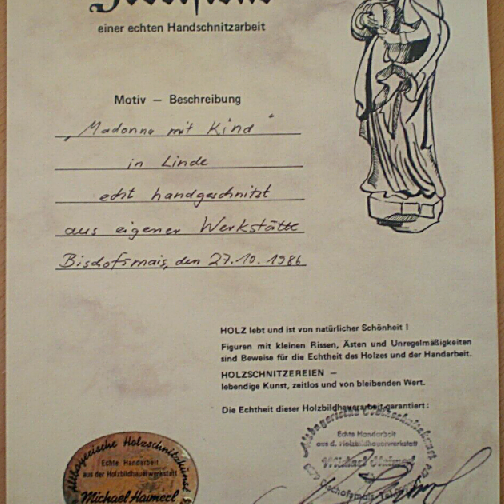 einer echten Handschnitzarbeit
Motiv — Beschreibung
„Madonna mit Kind"
in Linde
echt handgeschnitzt
aus eigener Werkstätte
Bischofsmais, den 27.10.1986
HOLZ lebt und ist von natürlicher Schönheit !
Figuren mit kleinen Rissen, Ästen und Unregelmäßigkeiten
sind Beweise für die Echtheit des Holzes und der Handarbeit.
HOLZSCHNITZEREIEN —
lebendige Kunst, zeitlos und von bleibenden Wert.
Die Echtheit dieser Holzbildhauerarbeit garantiert :
Echte Handarbeit
aus d. Holzbildhauerwerkstatt
Echte Handarbeit
aus der Holzbildhauerwerkstatt
Michael